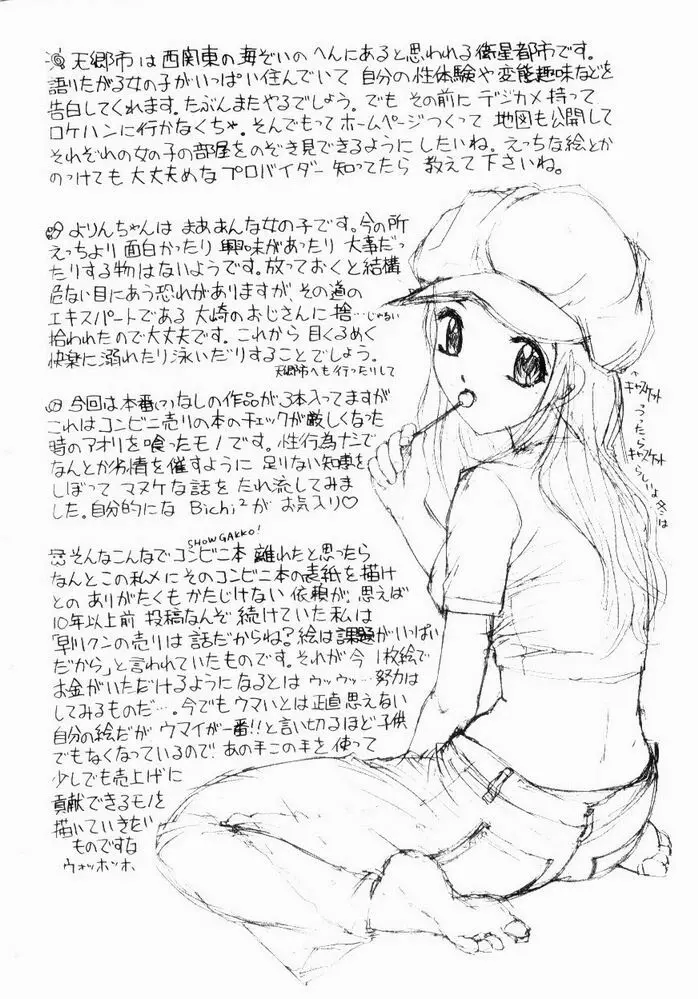 天郷市は西関東の海ぞいのへんにあると思われる衛星都市です。
語りたがる女の子がいっぱい住んでいて 自分の性体験や変態趣味などを
告白してくれます。たぶんまたやるでしょう。でも その前にデジカメ持って
ロケハンに行かなくちゃ。そんでもってホームページつくって 地図も公開して
それぞれの女の子の部屋をのぞき見できるようにしたいね。えっちな絵とか
のっけても大丈夫めなプロバイダー知ってたら 教えて下さいね。
よりんちゃんは まああんな女の子です。今の所
えっちより面白かったり 興味があったり 大事だっ
たりする物はないようです。放っておくと結構
危ない目にあう恐れがありますが、その道の
エキスパートである 大崎のおじさんに捨…じゃない
拾われたので大丈夫です。これから 目くるめく
快楽に溺れたり泳いだりすることでしょう。
天郷市へも行ったりして
今回は本番(?)なしの作品が3本入ってますが
これはコンビニ売りの本のチェックが厳しくなった
時のアオリを喰ったモノです。性行為なしで
なんとかお情を催すように 足りない知恵を
しぼって マヌケな話を たれ流してみま
した。自分的には Bichi²が お気入り♡
SHOWGAKKO!
そんなこんなでコンビニ本 離れたと思ったら
なんとこの私メにそのコンビニ本の表紙を描け
との ありがたくもかたじけない 依頼が。思えば
10年以上前 投稿なんぞ 続けていた私は
「早リクンの売りは 話だからね?絵は課題がいっぱい
だから」と言われていたものです。それが今 1枚絵で
お金がいただけるようになるとは ウッウッ…努力は
してみるものだ…。今でもウマいとは正直思えない
自分の絵だが ウマイが一番!!と言い切るほど子供
でもなくなっているので あの手この手を使って
少しでも売上げに
貢献できるモノを
描いていきたい
ものですな
ウォッホッホ
キャスケット
うったら
キャスケット
らしいよ